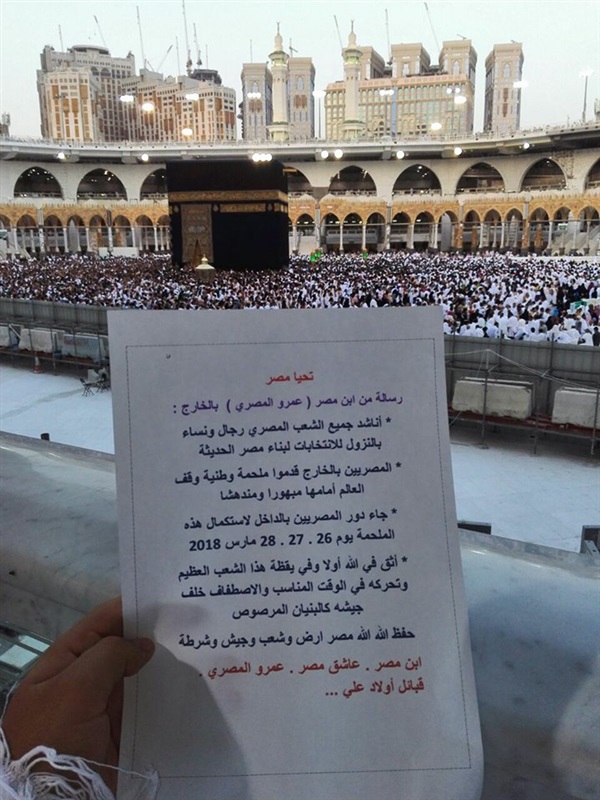 تحيا مصر
رسالة من ابن مصر ( عمرو المصري ) بالخارج :
* أناشد جميع الشعب المصري رجال ونساء
بالنزول للانتخابات لبناء مصر الحديثة
* المصريين بالخارج قدموا ملحمة وطنية وقف
العالم أمامها مبهورا ومندهشا
* جاء دور المصريين بالداخل لاستكمال هذه
الملحمة يوم 26 . 27 . 28 مارس 2018
* أثق في الله أولا وفي يقظة هذا الشعب العظيم
وتحركه في الوقت المناسب والاصطفاف خلف
جيشه كالبنيان المرصوص
حفظ الله الله مصر ارض وشعب وجيش وشرطة
ابن مصر . عاشق مصر . عمرو المصري .
قبائل أولاد علي ...